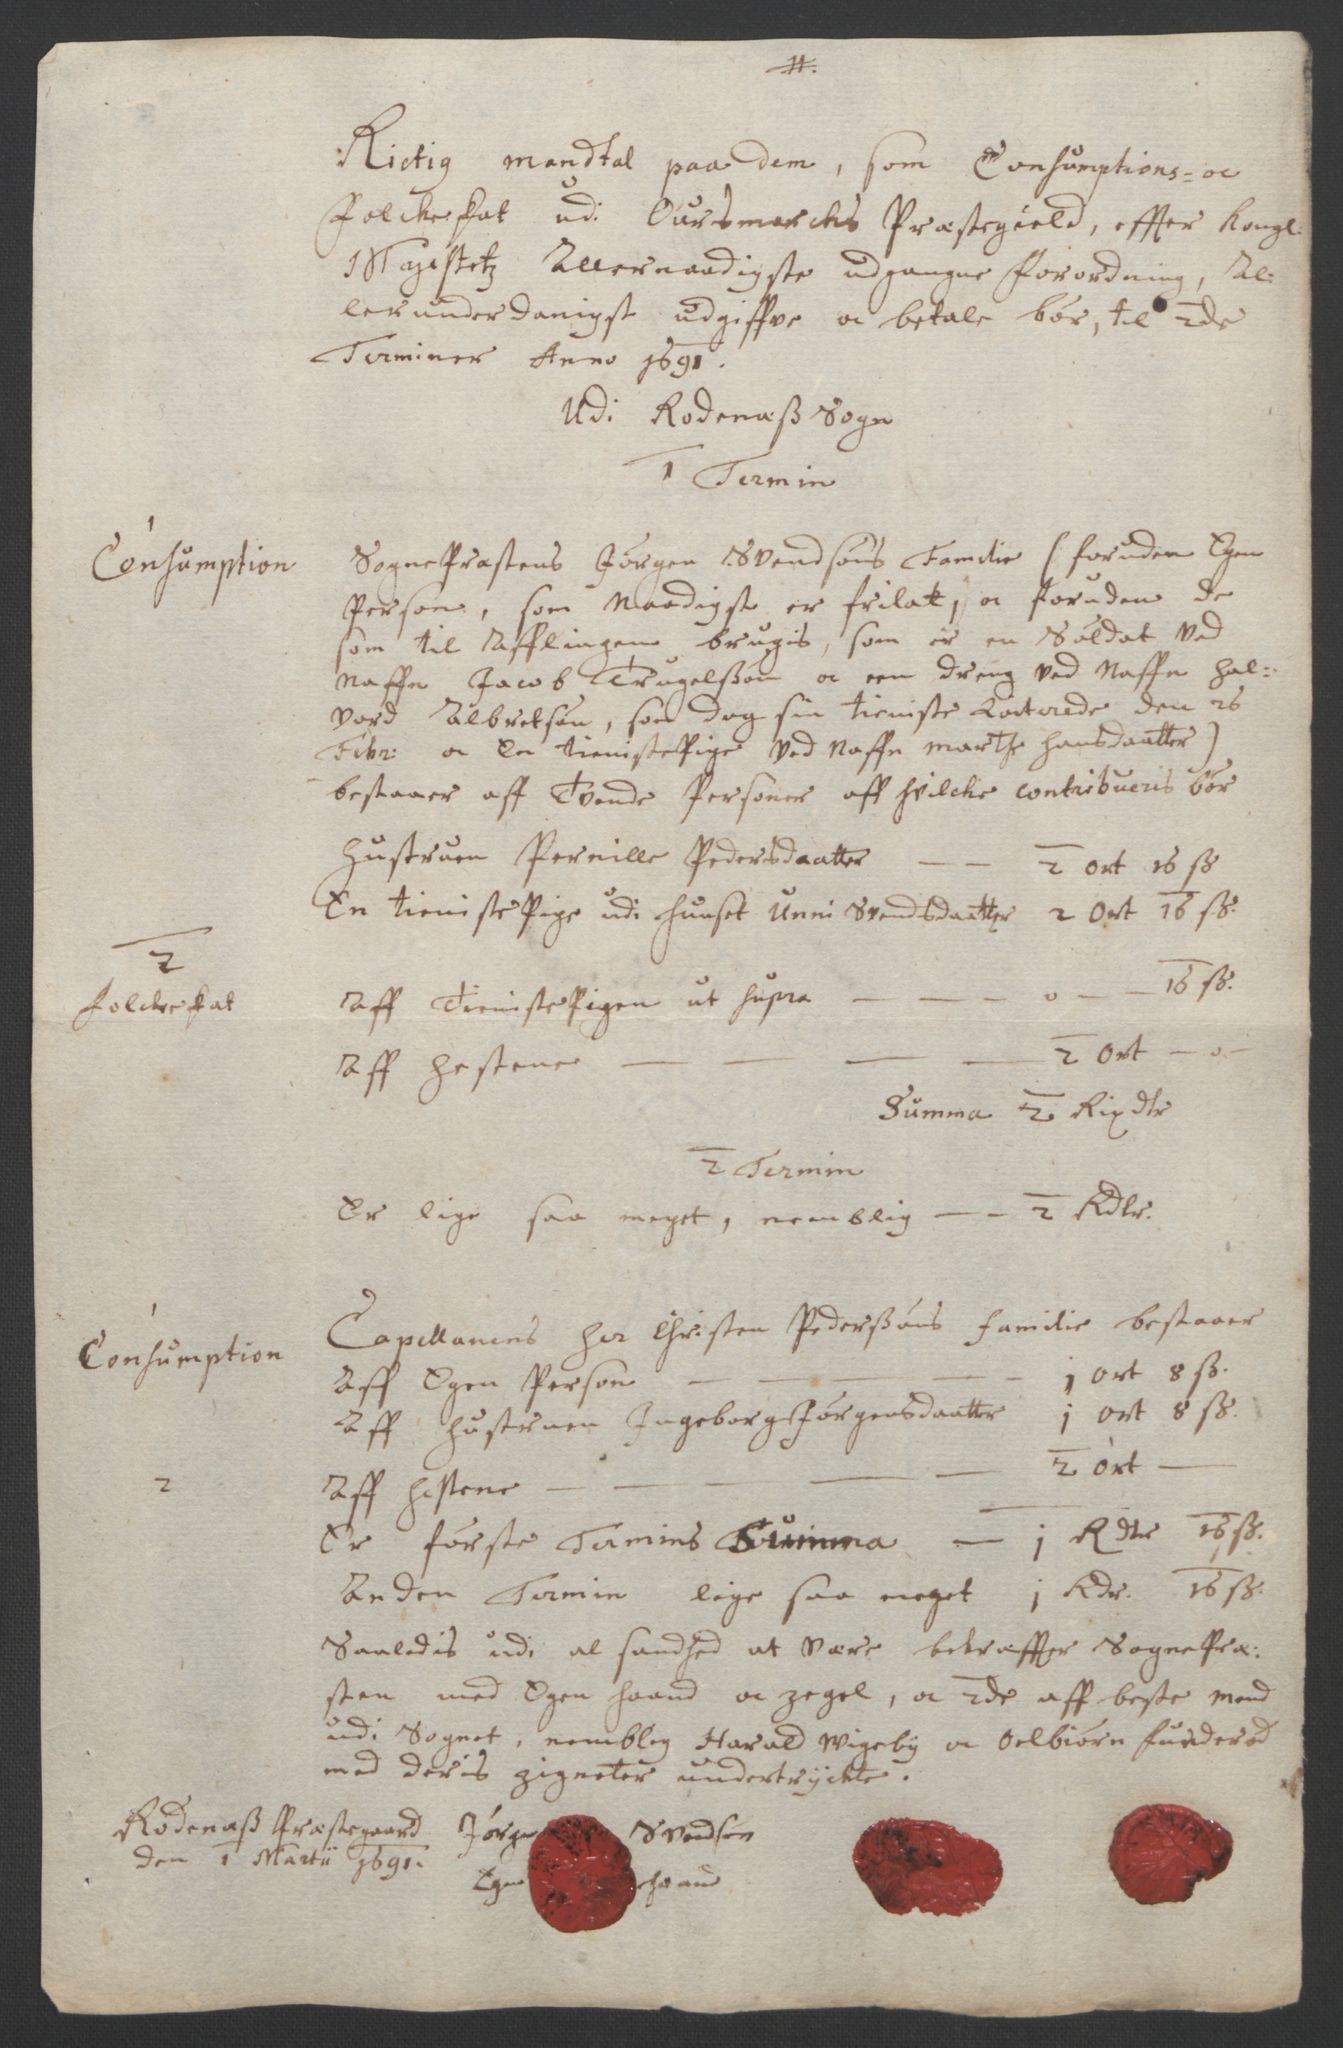 11.
Rictig mandtal paa dem, som Consumptions= oc
Folcke skat udi Oursmarckis Præstegield, effter Kongl:
Mayestetz Allernaadigste udgangne forordning, Al=
lerunderdanigst udgiffve oc betale bør, til 2de
Terminer Anno 1691.
Udi Rodenæß Sogn
1 Termin
1
Consumption
SognePræstens Jørgen Svendsøns Familie (foruden Egen
Person, som Naadigst er frilat, oc foruden de
som til Afflingen brugis, som er en Soldat ved
Naffn Jacob Trugelßøn oc een dreng ved Naffn Hal=
vord Albretsøn, som dog sin tieniste den 26
Febr: oc En tienistePige ved Naffn Marthe Hansdaatter)
bestaaer aff Tvende Personer aff hvilcke contribueris bør
Hustruen Pernille Pedersdaatter — — 2 Ort 16 ß
En tienistePige udi huuset Unni Svendsdaatter 2 Ort 16 ß.
2
Folcke skat
Aff TienistePigen ut supra — — — o — — 16 ß.
Aff Hestene — — — — 2 Ort — o —
Summa 2 Rixdlr
2 Termin
Er lige saa meget, nemblig — — 2 Rdlr.
1
Consumption
Capellanens her Christen Pederßøns familie bestaaer
Aff Egen Person — — — — — 1 ort 8 ß.
Aff Hustruen Ingeborg Jørgensdaatter 1 ort 8 ß.
2
Aff Hestene — — — — — 2 ort —
Er første Termins Summa — 1 Rdlr 16 ß.
Anden Termin lige saa meget 1 Rdr. 16 ß.
Saaledis udi al sandhed at være bekræffter SognePræ=
sten med Egen haand oc zegel, oc 2de aff beste mend
udi Sognet, nemblig Harald Wigeby oc Oelbiørn
med deris zigneter undertryckte.
Rodenæß Præstegaard
den 1 Martii 1691.
Jørgen Svendsen
Egen haand